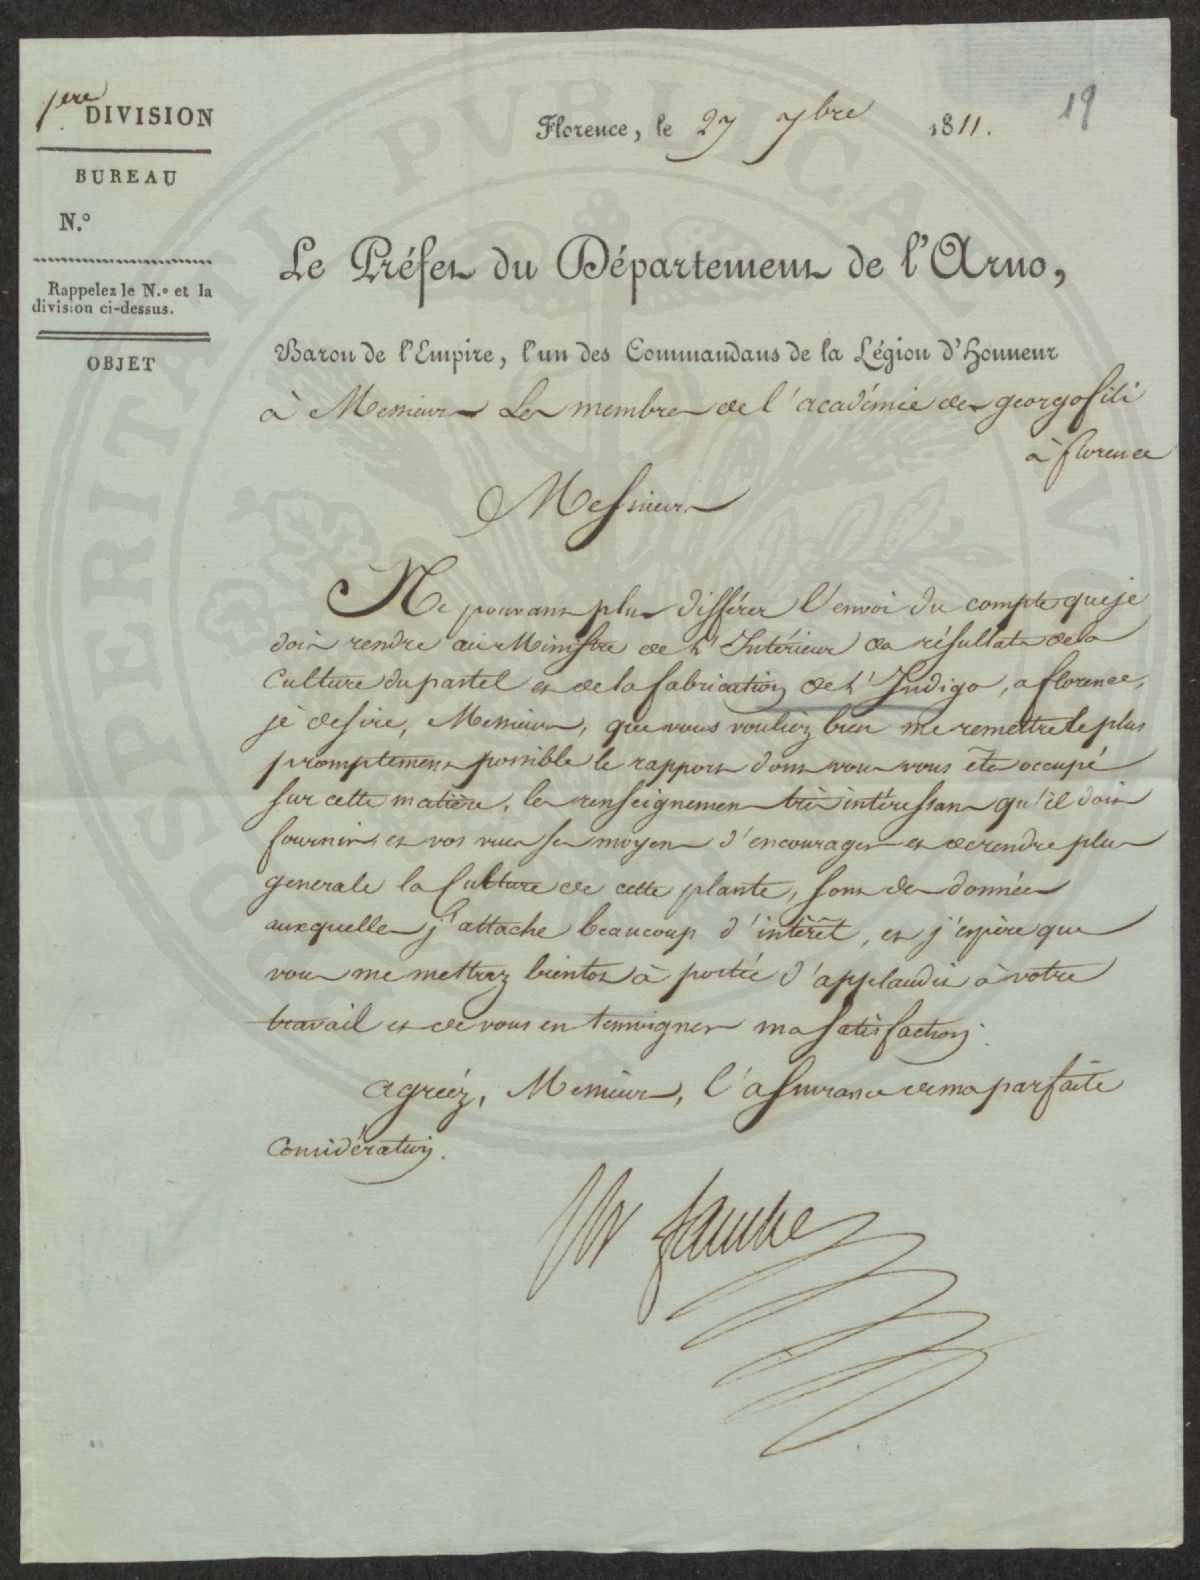 1ere DIVISION
BUREAU
N.°
Rappelez le N.° et la
division ci-dessus.
OBJET
19
Florence, le 27 7bre 1811.
Le Préfet du Département de l'Arno,
Baron de l'Empire, l'un des Commandans de la Légion d'Honneur
à Messieurs Les membres de l'académie des georgofili
à florence
Messieurs
Ne pouvant plus différer l'envoi du compte que je
dois rendre au Ministre de l'Intérieur des résultats de la
Culture du pastel et de la fabrication de l'Indigo, a florence,
je desire, Messieurs, que vous vouliez bien me remettre le plus
promptement possible le rapport dont vous vous êtes occupé
sur cette matière. les renseignemens très intéressans qu'il doit
fournir, et vos vues sur moyens d'encourager et de rendre plus
generale la Culture de cette plante, sont des données
auxquelles j'attache beaucoup d'intérêt, et j'espère que
vous me mettrez bientot à portée d'applaudir à votre
travail et de vous en temoigner ma satisfaction.
agréez, Messieurs, l'assurance de ma parfaite
Considération.
fauche
PROSPERITATI PVBLICAE